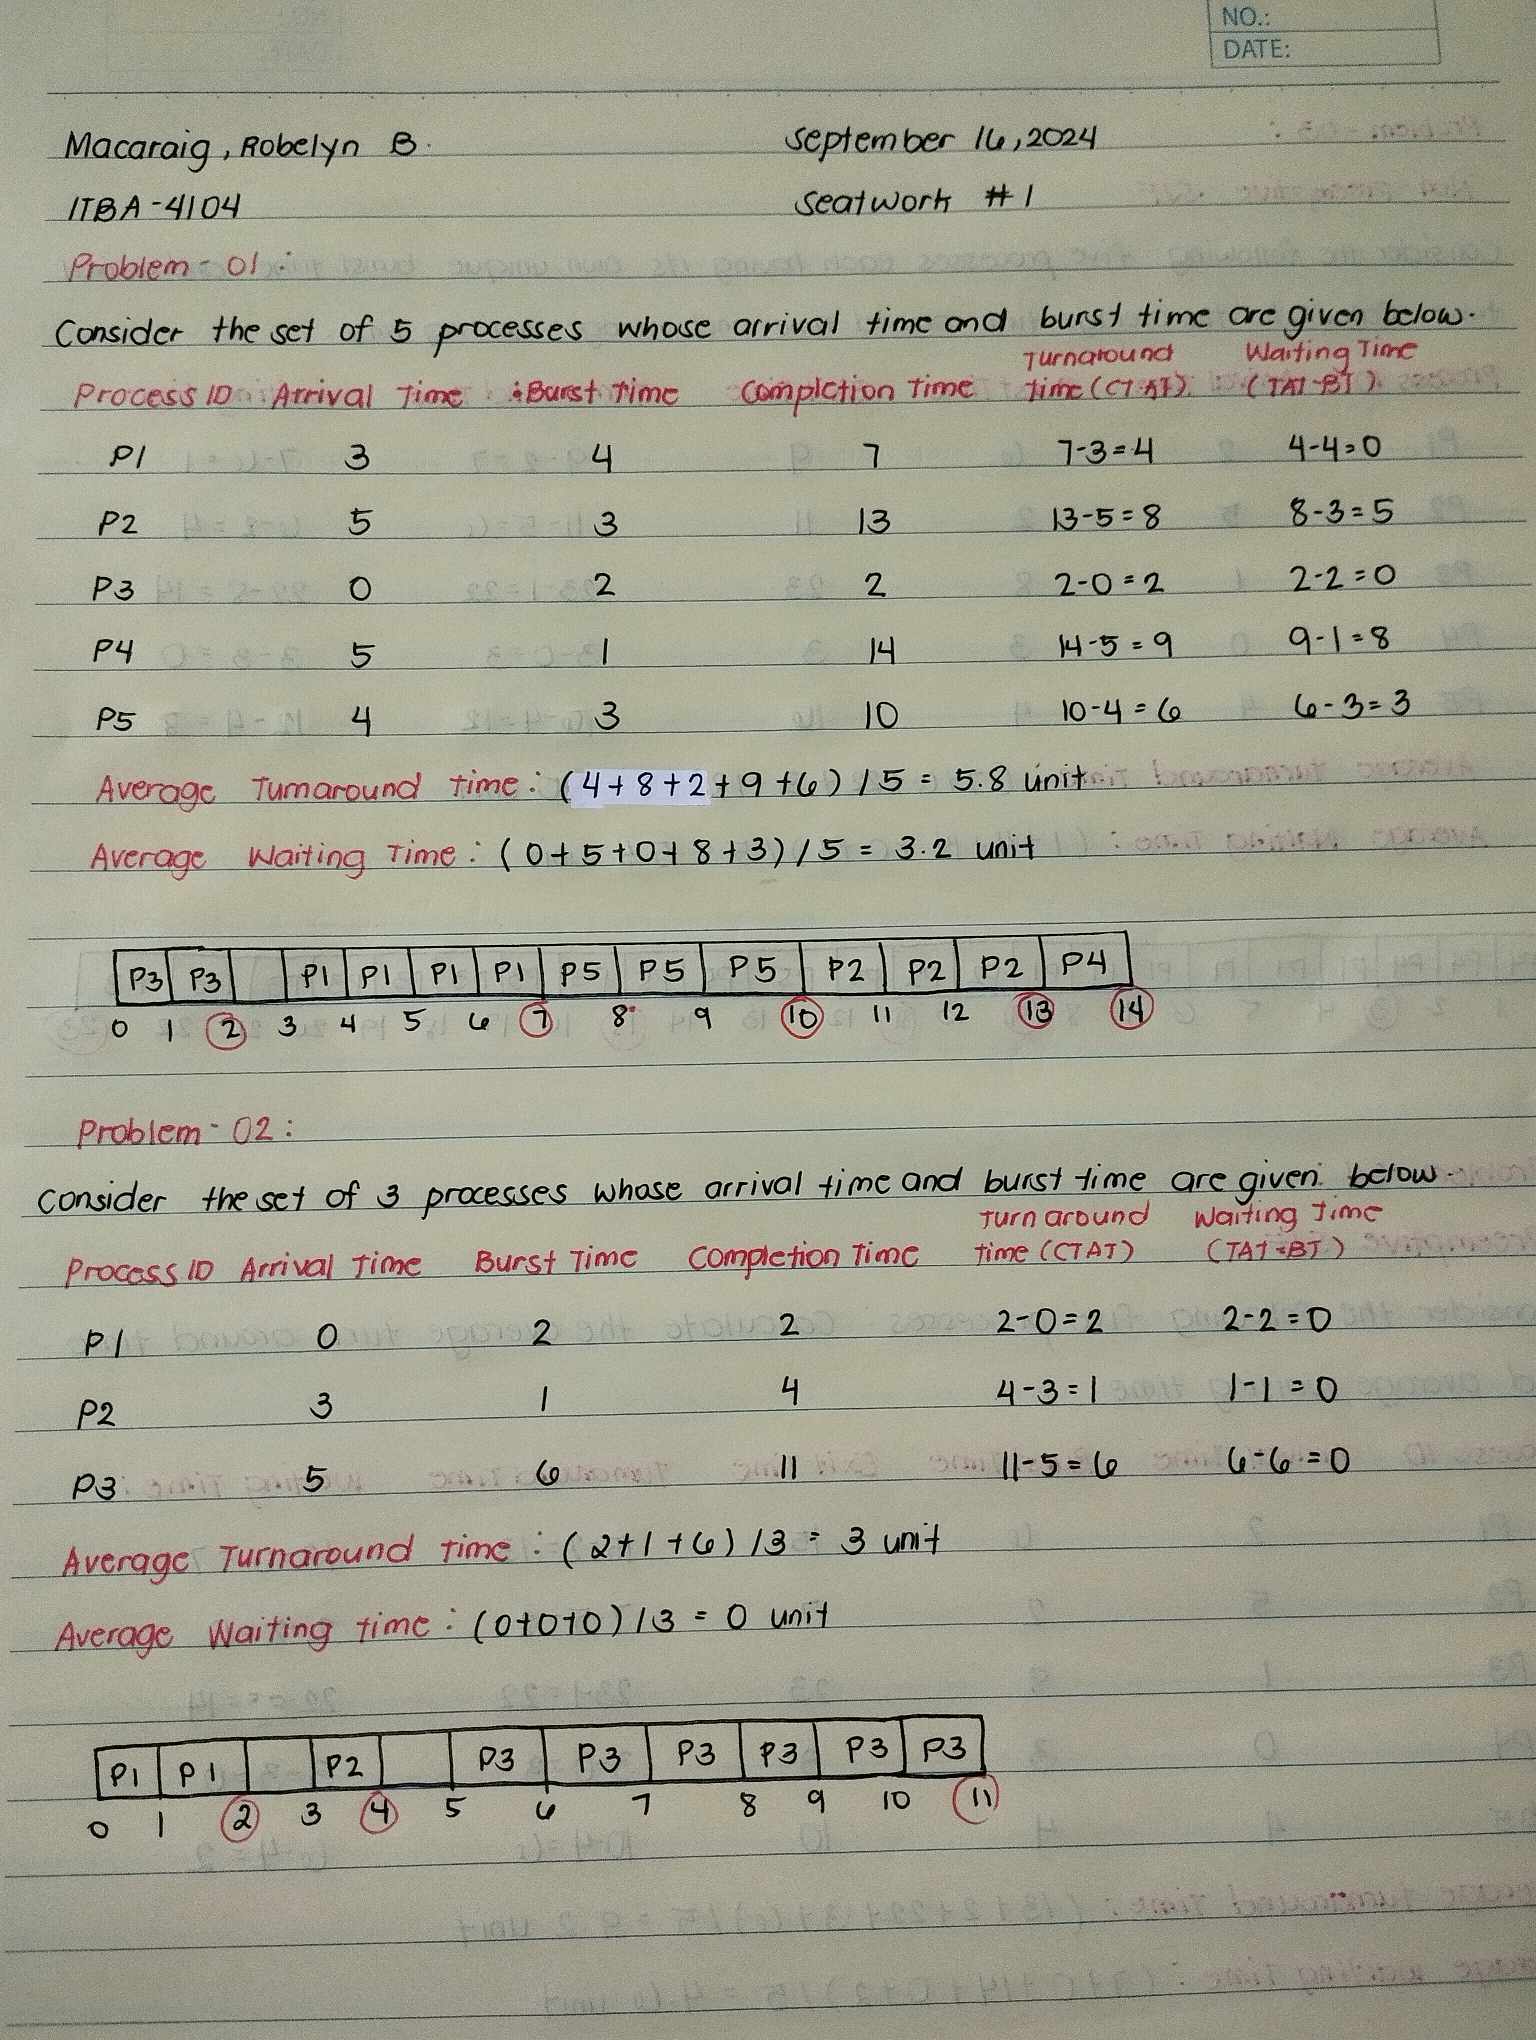 NO.:
DATE:
Macaraig, Robelyn B. September 16, 2024
ITBA-4104 Seatwork #1
Problem-01:
Consider the set of 5 processes whose arrival time and burst time are given below.
Turnaround Waiting Time
Process ID Arrival Time Burst Time Completion Time Time (CT-AT) (TAT-BT)
P1 3 4 7 7-3=4 4-4=0
P2 5 3 13 13-5=8 8-3=5
P3 0 2 2 2-0=2 2-2=0
P4 5 1 14 14-5=9 9-1=8
P5 4 3 10 10-4=6 6-3=3
Average Turnaround Time: (4+8+2+9+6)/5 = 5.8 unit
Average Waiting Time: (0+5+0+8+3)/5 = 3.2 unit
P3 P3 P1 P1 P1 P1 P5 P5 P5 P2 P2 P2 P4
0 1 2 3 4 5 6 7 8 9 10 11 12 13 14
Problem-02:
Consider the set of 3 processes whose arrival time and burst time are given below.
Turn around Waiting Time
Process ID Arrival Time Burst Time Completion Time Time (CTAT) (TAT-BT)
P1 0 2 2 2-0=2 2-2=0
P2 3 1 4 4-3=1 1-1=0
P3 5 6 11 11-5=6 6-6=0
Average Turnaround Time: (2+1+6)/3 = 3 unit
Average Waiting time: (0+0+0)/3 = 0 unit
P1 P1 P2 P3 P3 P3 P3 P3 P3
0 1 2 3 4 5 6 7 8 9 10 11